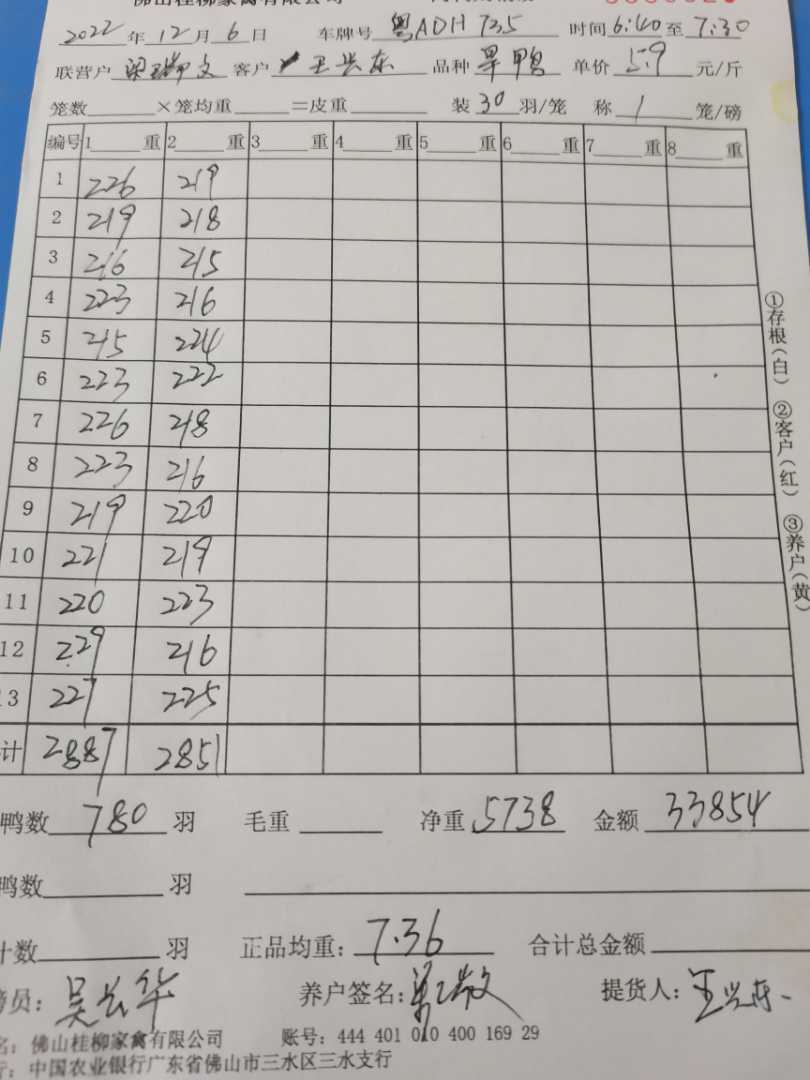 佛山桂柳家禽有限公司
2022年12月6日 车牌号 粤ADH 735 时间6:40至7:30
联营户 客户 王兴东 品种 旱鸭 单价 5.9 元/斤
笼数 ×笼均重 =皮重 装30羽/笼 称 1 笼/磅
编号 1 重 2 重 3 重 4 重 5 重 6 重 7 重 8 重
1 226 219
2 219 218
3 216 215
4 223 216
5 215 224
6 223 222
7 226 218
8 223 216
9 219 220
10 221 219
11 220 223
12 229 216
13 227 225
计 2887 2851
鸭数 780 羽 毛重 净重 5738 金额 33854
鸭数 羽
计数 羽 正品均重: 7.36 合计总金额
员: 吴兴华 养户签名: 提货人: 王兴东
名: 佛山桂柳家禽有限公司 账号: 444 401 010 400 169 29
行: 中国农业银行广东省佛山市三水区三水支行
①存根(白) ②客户(红) ③养户(黄)